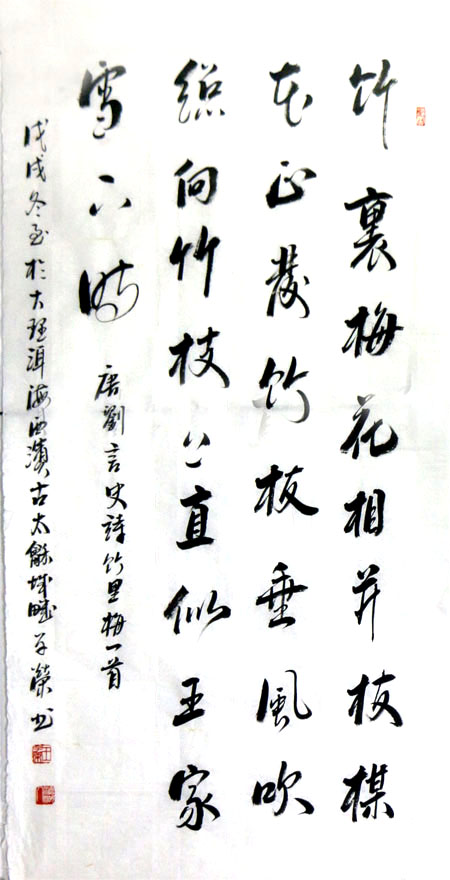 竹裏梅花相并枝楳
花正發竹枝垂風吹
緫向竹枝上直似王家
雪下時
唐劉言史詩竹里梅一首
戊戌冬至於大理洱海西濱古太龢城畔子榮书